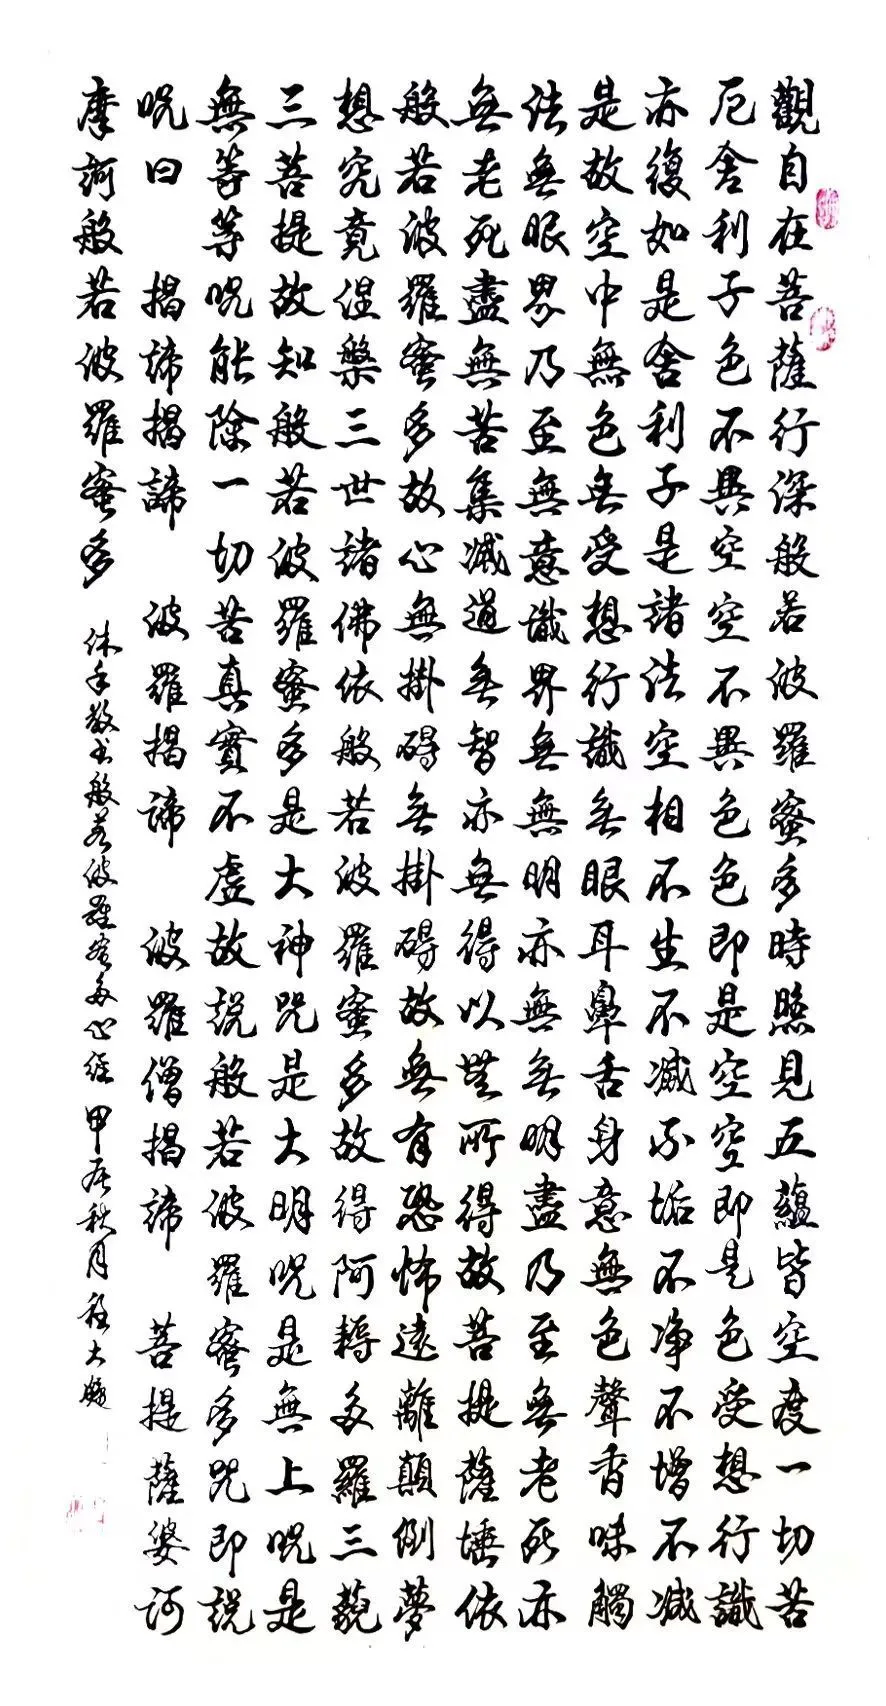 觀自在菩薩行深般若波羅蜜多時照見五蘊皆空度一切苦
厄舍利子色不異空空不異色色即是空空即是色受想行識
亦復如是舍利子是諸法空相不生不滅不垢不净不增不減
是故空中無色無受想行識無眼耳鼻舌身意無色聲香味觸
法無眼界乃至無意識界無無明亦無無明盡乃至無老死亦
無老死盡無苦集滅道無智亦無得以無所得故菩提薩埵依
般若波羅蜜多故心無掛碍無掛碍故無有恐怖遠離顛倒夢
想究竟涅槃三世諸佛依般若波羅蜜多故得阿耨多羅三藐
三菩提故知般若波羅蜜多是大神咒是大明咒是無上咒是
無等等咒能除一切苦真實不虛故説般若波羅蜜多咒即説
咒曰 揭諦揭諦 波羅揭諦 波羅僧揭諦 菩提薩婆訶
摩訶般若波羅蜜多
沐手敬书般若波羅蜜多心經 甲辰秋月